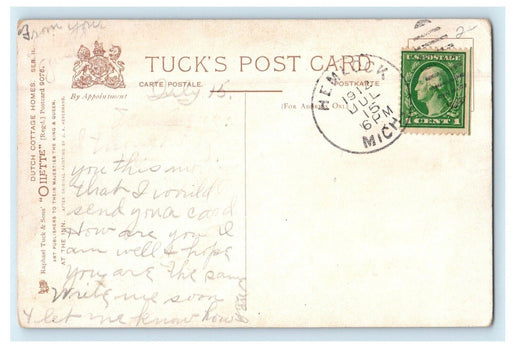 From your
2-
TUCK'S POST CARD
CARTE POSTALE.
POSTKARTE
By Appointment
(FOR ADDRESS ONLY)
July 15
HEMLOCK
MICH
1913
6 PM
U.S. POSTAGE
1 CENT 1
DUTCH COTTAGE HOMES. SER. II.
Raphael Tuck & Sons' "OILETTE" [Regd.] Postcard 9076.
ART PUBLISHERS TO THEIR MAJESTIES THE KING & QUEEN.
AT THE INN.
you this mo
that I would
send you a card
How are you I
am well & hope
you are the same
Write me soon
& let me know how